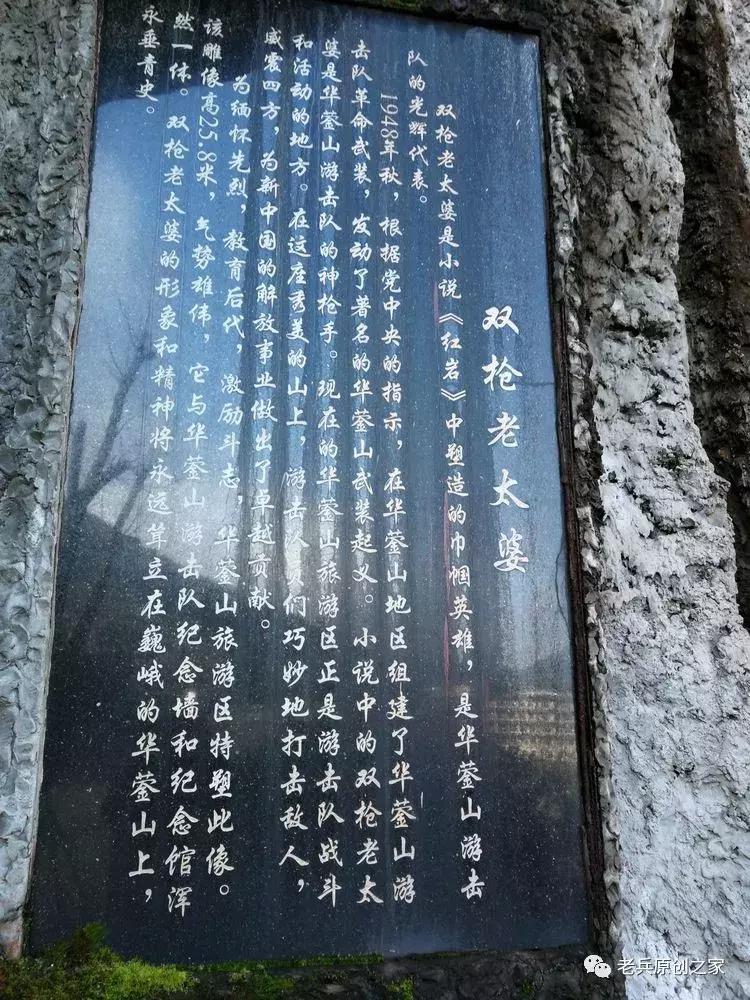 双枪老太婆
双枪老太婆是小说《红岩》中塑造的巾帼英雄，是华蓥山游击
队的光辉代表。
1948年秋，根据党中央的指示，在华蓥山地区组建了华蓥山游
击队革命武装，发动了著名的华蓥山武装起义。小说中的双枪老太
婆是华蓥山游击队的神枪手。现在的华蓥山旅游区正是游击队战斗
和活动的地方。在这座秀美的山上，游击队员们巧妙地打击敌人，
威震四方，为新中国的解放事业做出了卓越贡献。
为缅怀先烈，教育后代，激励斗志，华蓥山旅游区特塑此像。
该雕像高25.8米，气势雄伟，它与华蓥山游击队纪念墙和纪念馆浑
然一体。双枪老太婆的形象和精神将永远耸立在巍峨的华蓥山上，
永垂青史。
老兵原创之家